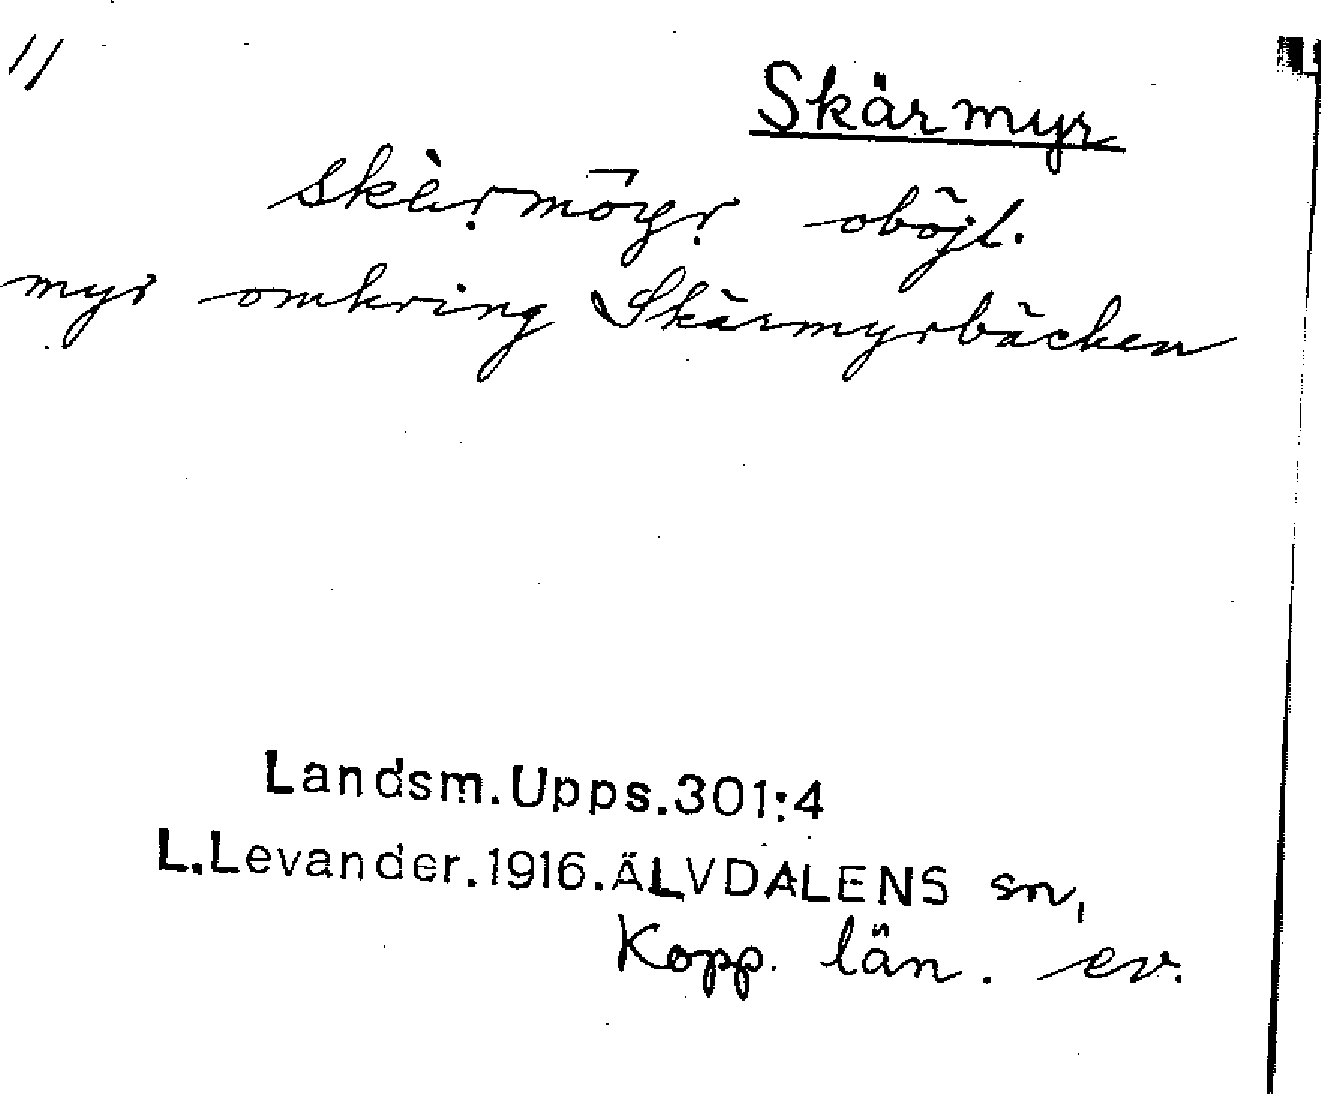 11
Skärmyr
skèr̥möyr̥ oböjl.
myr omkring Skärmyrbäcken
Landsm.Upps.301:4
L.Levander.1916.ÄLVDALENS sn,
Kopp. län. ev.